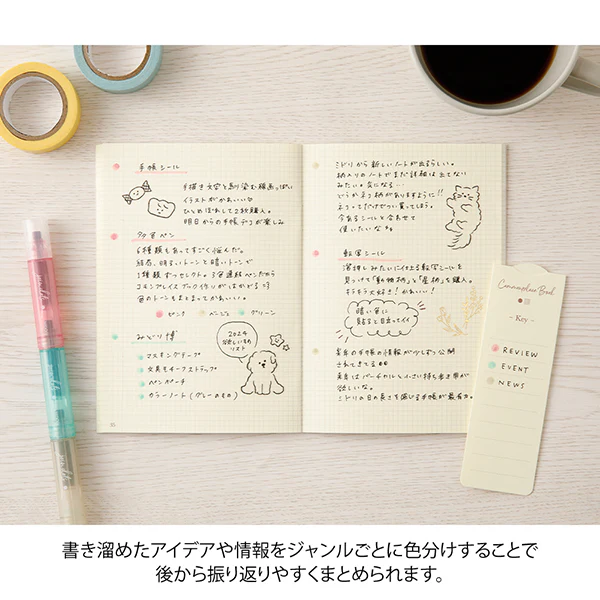 手帳シール
手描き文字と馴染む線画っぽい
イラストがかわいい
ひとめぼれして2枚購入。
明日からの手帳デコが楽しみ
多色ペン
6種類もあってすごく悩んだ。
結局、明るいトーンと暗いトーンで
1種類ずつセレクト。3色連続ペンだから
コモンプレイスブック作りがはかどる
色のトーンもまとまってかわいい。
ピンク ベージュ グリーン
みどり博
マスキングテープ
文具モチーフストラップ
ペンポーチ
カラーノート(グレーのもの)
2024
欲しいもの
リスト
ミドリから新しいノートが出るらしい。
柄入りのノートでまだ詳細は出てない
みたい。気になる…
どうかネコ柄がありますように!!
ネコってだけでつい買ってしまう。
今あるシールと合わせて
使いたいな
転写シール
見つけて「動物柄」と「星柄」を購入。
キラキラ大好き!かわいい!
暗い色に
貼ると目立ってイイ
来年の手帳の情報が少しずつ公開
されてきてる
来年はバーチカルと小さい持ち歩き用が
欲しいな。
ミドリの日の長さを感じる手帳が最有力。
Commonplace Book
- Key -
REVIEW
EVENT
NEWS
書き溜めたアイデアや情報をジャンルごとに色分けすることで
後から振り返りやすくまとめられます。